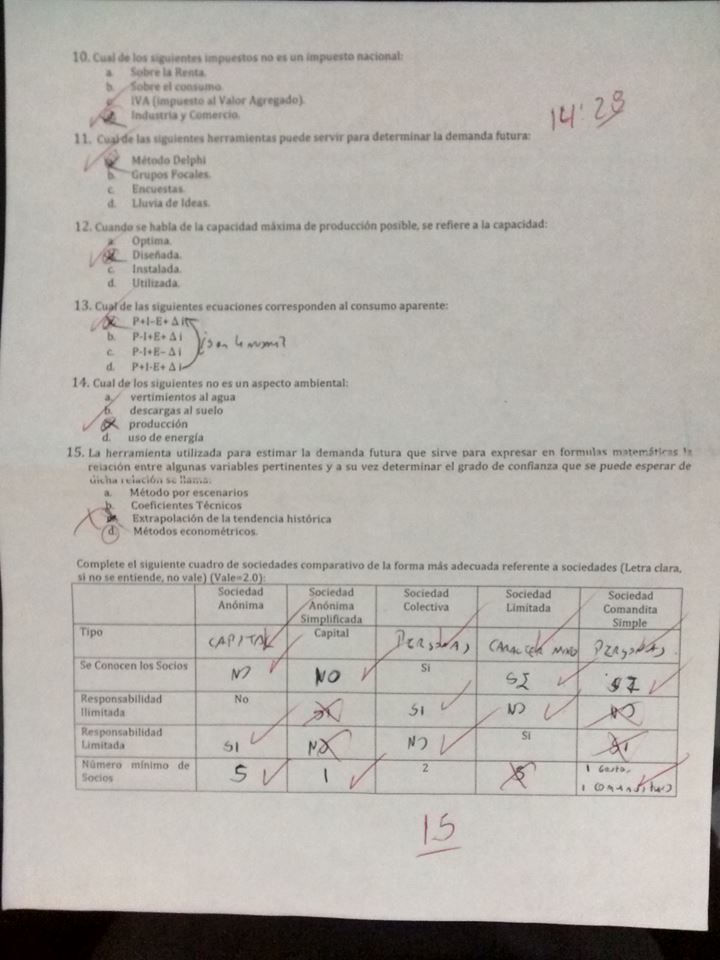 10. Cual de los siguientes impuestos no es un impuesto nacional:
a. Sobre la Renta.
b. Sobre el consumo.
c. IVA (impuesto al Valor Agregado).
Industria y Comercio.
14:28
11. Cual de las siguientes herramientas puede servir para determinar la demanda futura:
Método Delphi
b. Grupos Focales.
c. Encuestas.
d. Lluvia de Ideas.
12. Cuando se habla de la capacidad máxima de producción posible, se refiere a la capacidad:
a. Optima.
Diseñada.
c. Instalada.
d. Utilizada.
13. Cual de las siguientes ecuaciones corresponden al consumo aparente:
P+I-E+ Δ i
b. P-I+E+ Δ i
c. P-I+E- Δ i
d. P+I-E+ Δ i
14. Cual de los siguientes no es un aspecto ambiental:
a. vertimientos al agua
b. descargas al suelo
producción
d. uso de energía
15. La herramienta utilizada para estimar la demanda futura que sirve para expresar en formulas matemáticas la
relación entre algunas variables pertinentes y a su vez determinar el grado de confianza que se puede esperar de
dicha relación se llama:
a. Método por escenarios
b. Coeficientes Técnicos
Extrapolación de la tendencia histórica
d. Métodos econométricos.
Complete el siguiente cuadro de sociedades comparativo de la forma más adecuada referente a sociedades (Letra clara,
si no se entiende, no vale) (Vale=2.0):
Sociedad Anónima Sociedad Anónima Simplificada Sociedad Colectiva Sociedad Limitada Sociedad Comandita Simple
Tipo CAPITAL Capital PERSONAS CARACTER MIXTO PERSONAS
Se Conocen los Socios NO NO Si SI SI
Responsabilidad Ilimitada No SI SI NO NO
Responsabilidad Limitada SI NO NO Si SI
Número mínimo de Socios 5 1 2 5 1 Gestor 1 Comanditario
1.5